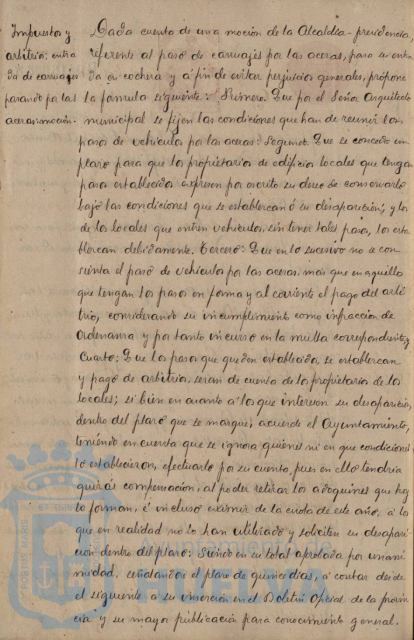 Impuestos y
arbitrios; entra-
da de carruajes
pasando por las
aceras: moción.
Dada cuenta de una moción de la Alcaldía-presidencia,
referente al paso de carruajes por las aceras, para su entra-
da en cochera y a fin de evitar perjuicios generales, propone
la fórmula siguiente: Primero: Que por el Señor Arquitecto
municipal se fijen las condiciones que han de reunir los
pasos de vehículos por las aceras: Segundo: Que se conceda un
plazo para que los propietarios de edificios locales que tengan
pasos establecidos expresen por escrito su deseo de conservarlo
bajo las condiciones que se establezcan ó su desaparición; y los
de los locales que entren vehículos, sin tener tales pasos, los esta-
blezcan debidamente. Tercero: Que en lo sucesivo no se con-
sienta el paso de vehículos por las aceras, mas que en aquellos
que tengan los pasos en forma y al corriente el pago del arbi-
trio, considerando su incumplimiento como infracción de
Ordenanza y por tanto incurso en la multa correspondiente; y
Cuarto: Que los pasos que queden establecidos, se establezcan
y pago de arbitrio, serán de cuenta de los propietarios de los
locales; si bien en cuanto a los que interesen su desaparición,
dentro del plazo que se marque, acuerde el Ayuntamiento,
teniendo en cuenta que se ignora quienes ni en que condiciones
lo establecieron, efectuarlo por su cuenta, pues en ello tendría
quizás compensación, al poder retirar los adoquines que hoy
lo forman, é incluso eximir de la cuota de este año, á los
que en realidad no lo han utilizado y soliciten su desapari-
ción dentro del plazo: Siendo en su total aprobada por unani-
midad, señalandose el plazo de quince días, á contar desde
el siguiente a su inserción en el Boletín Oficial de la provin-
cia y su mayor publicación para conocimiento general.